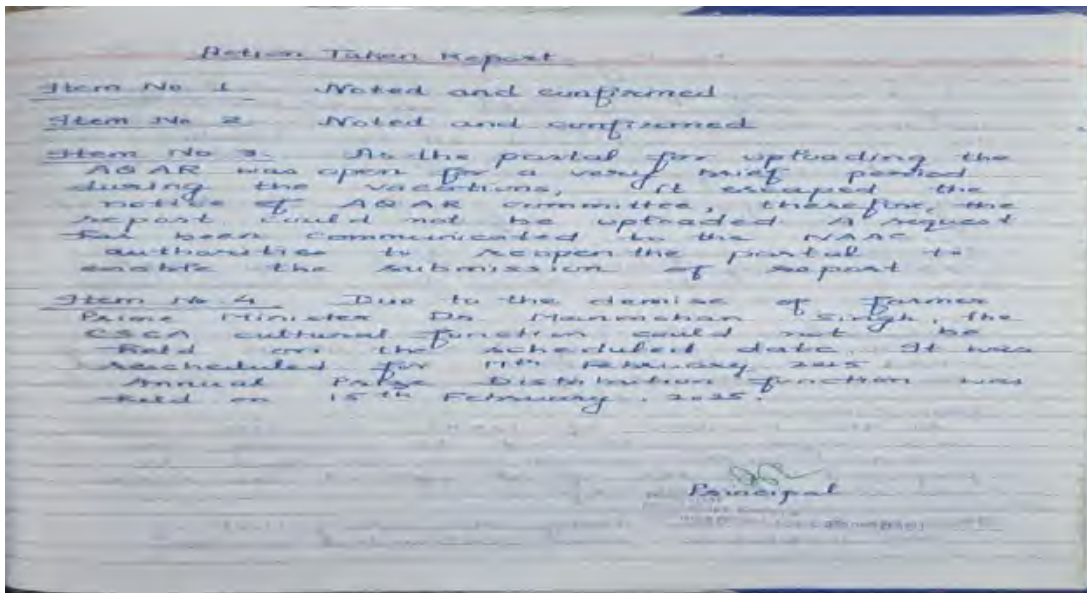 Action Taken Report
Item No 1 Noted and confirmed
Item No 2 Noted and confirmed
Item No 3. As the portal for uploading the
AQAR was open for a very brief period
during the vacations, it escaped the
notice of AQAR committee, therefore, the
report could not be uploaded. A request
has been communicated to the NAAC
authorities to reopen the portal to
enable the submission of report
Item No 4 Due to the demise of Former
Prime Minister Dr Manmohan Singh, the
CSCA cultural function could not be
held on the scheduled date. It was
rescheduled for 11th February 2025.
Annual Prize Distribution function was
held on 15th February, 2025.
Principal